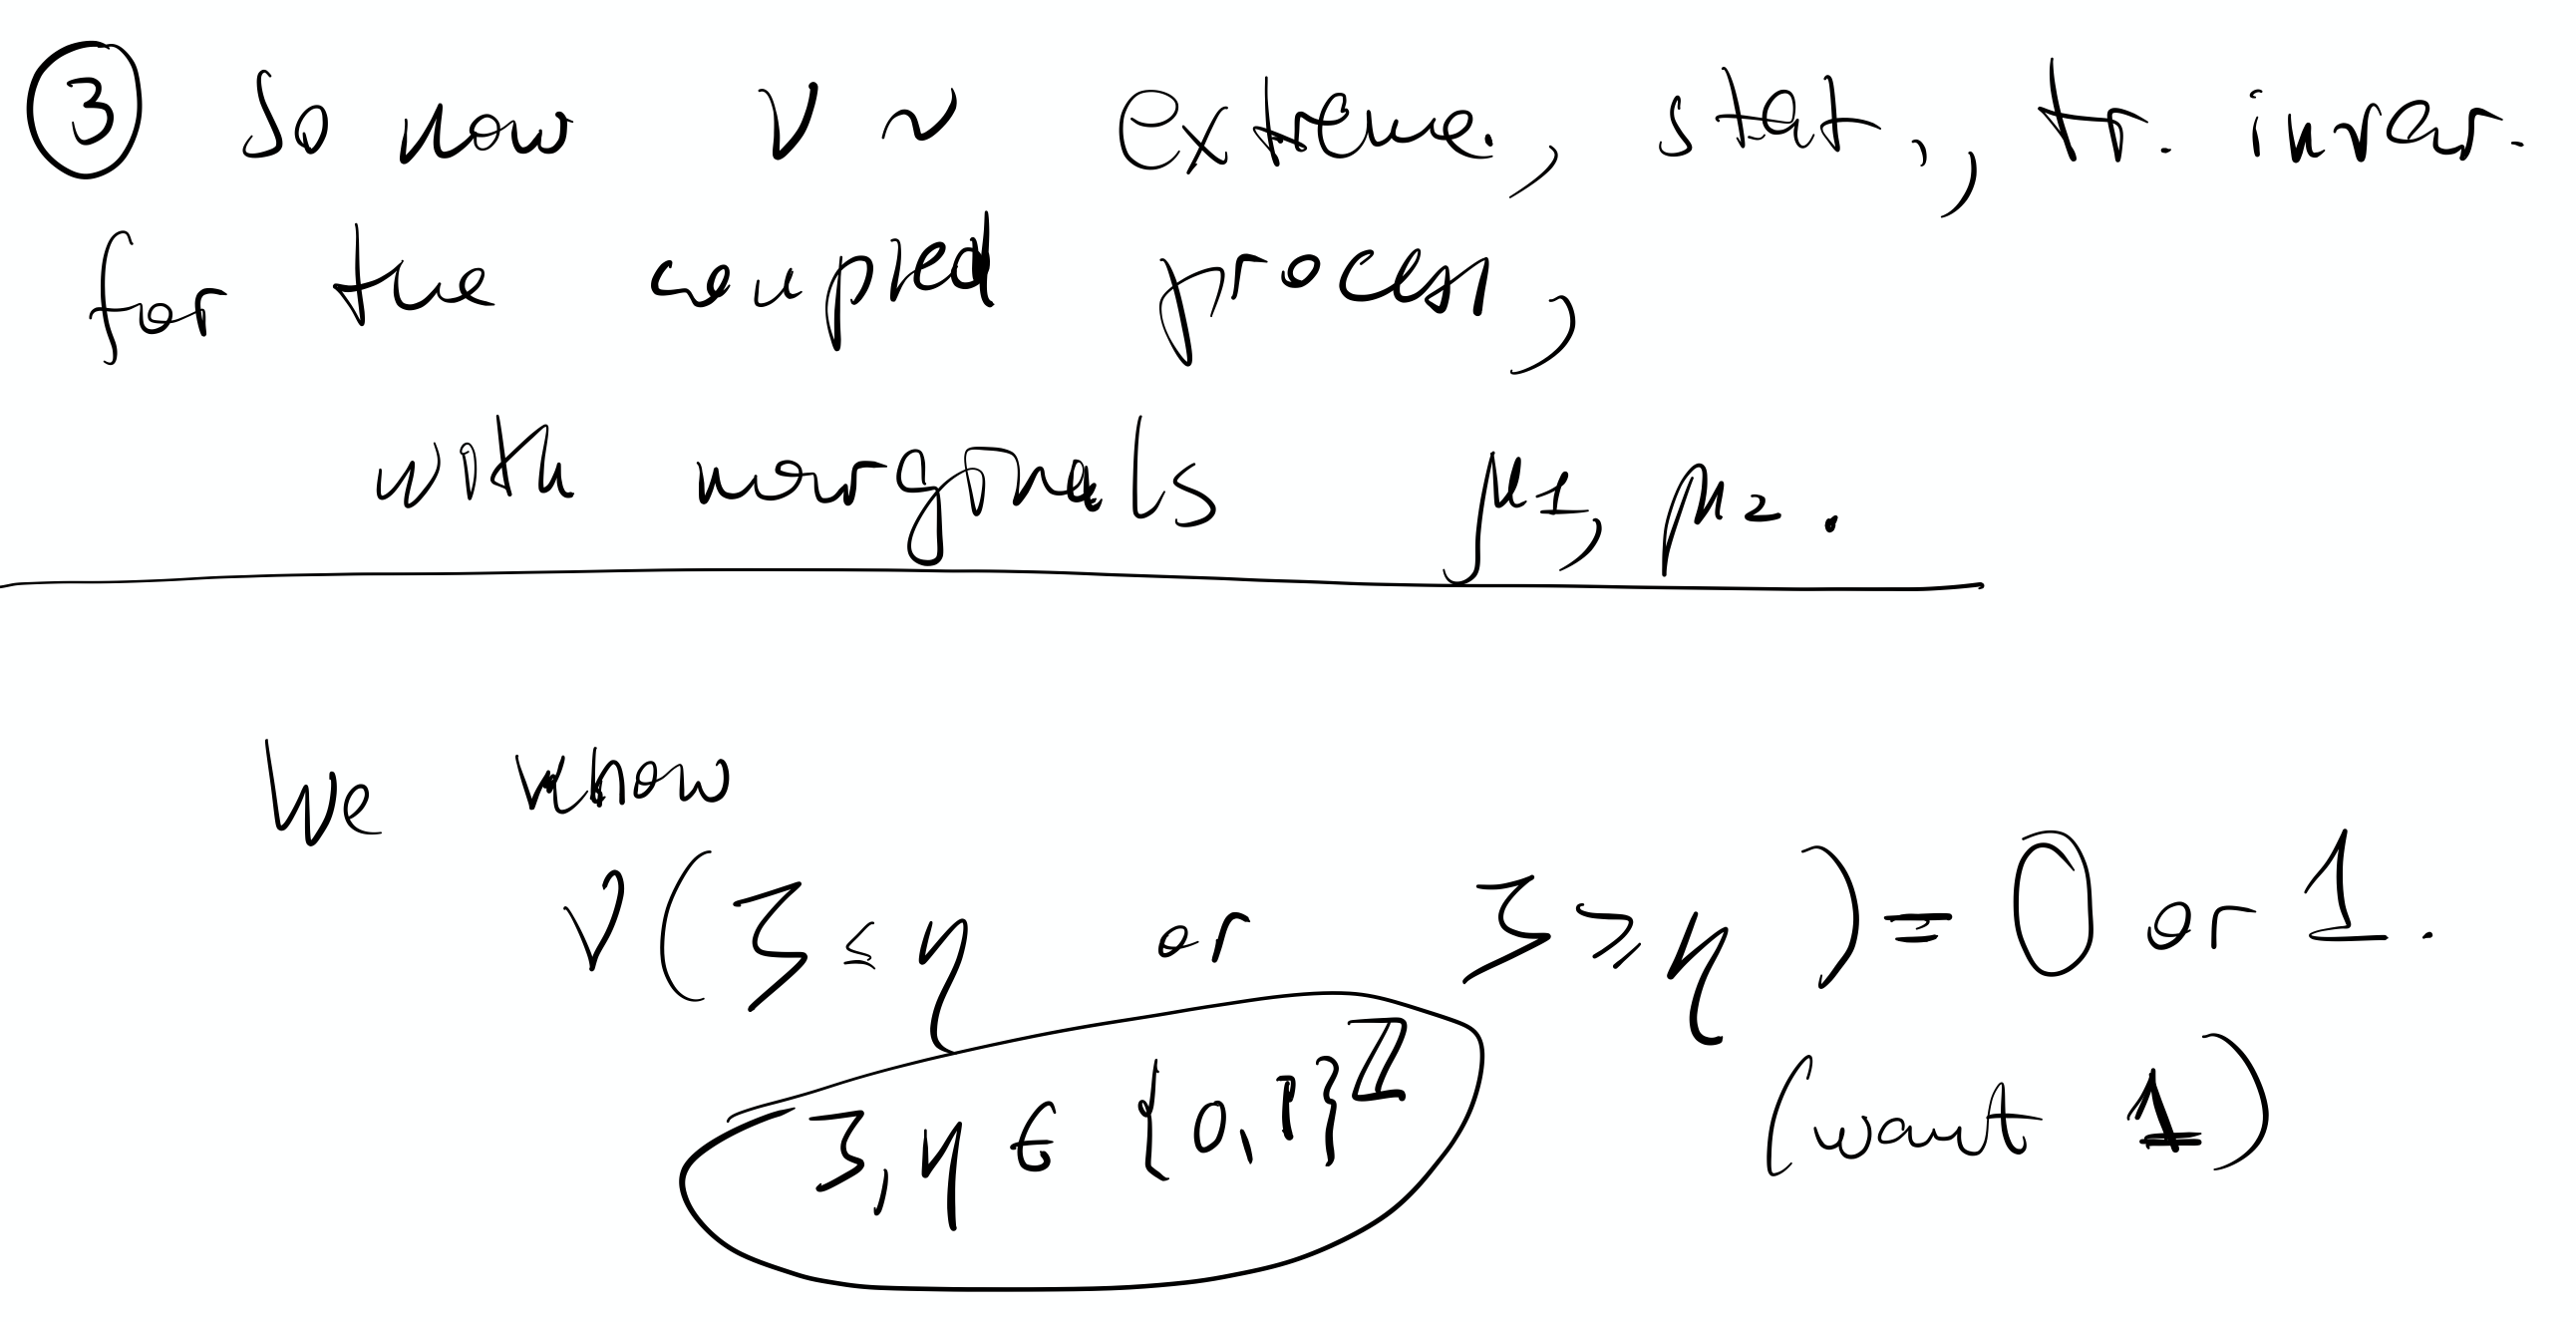 ③ So now ν ~ extreme., stat., tr. invar.
for the coupled process,
with marginals μ1, μ2.
We know
ν(ξ ≤ η or ξ ≥ η) = 0 or 1.
ξ, η ∈ {0,1}^ℤ (want 1)